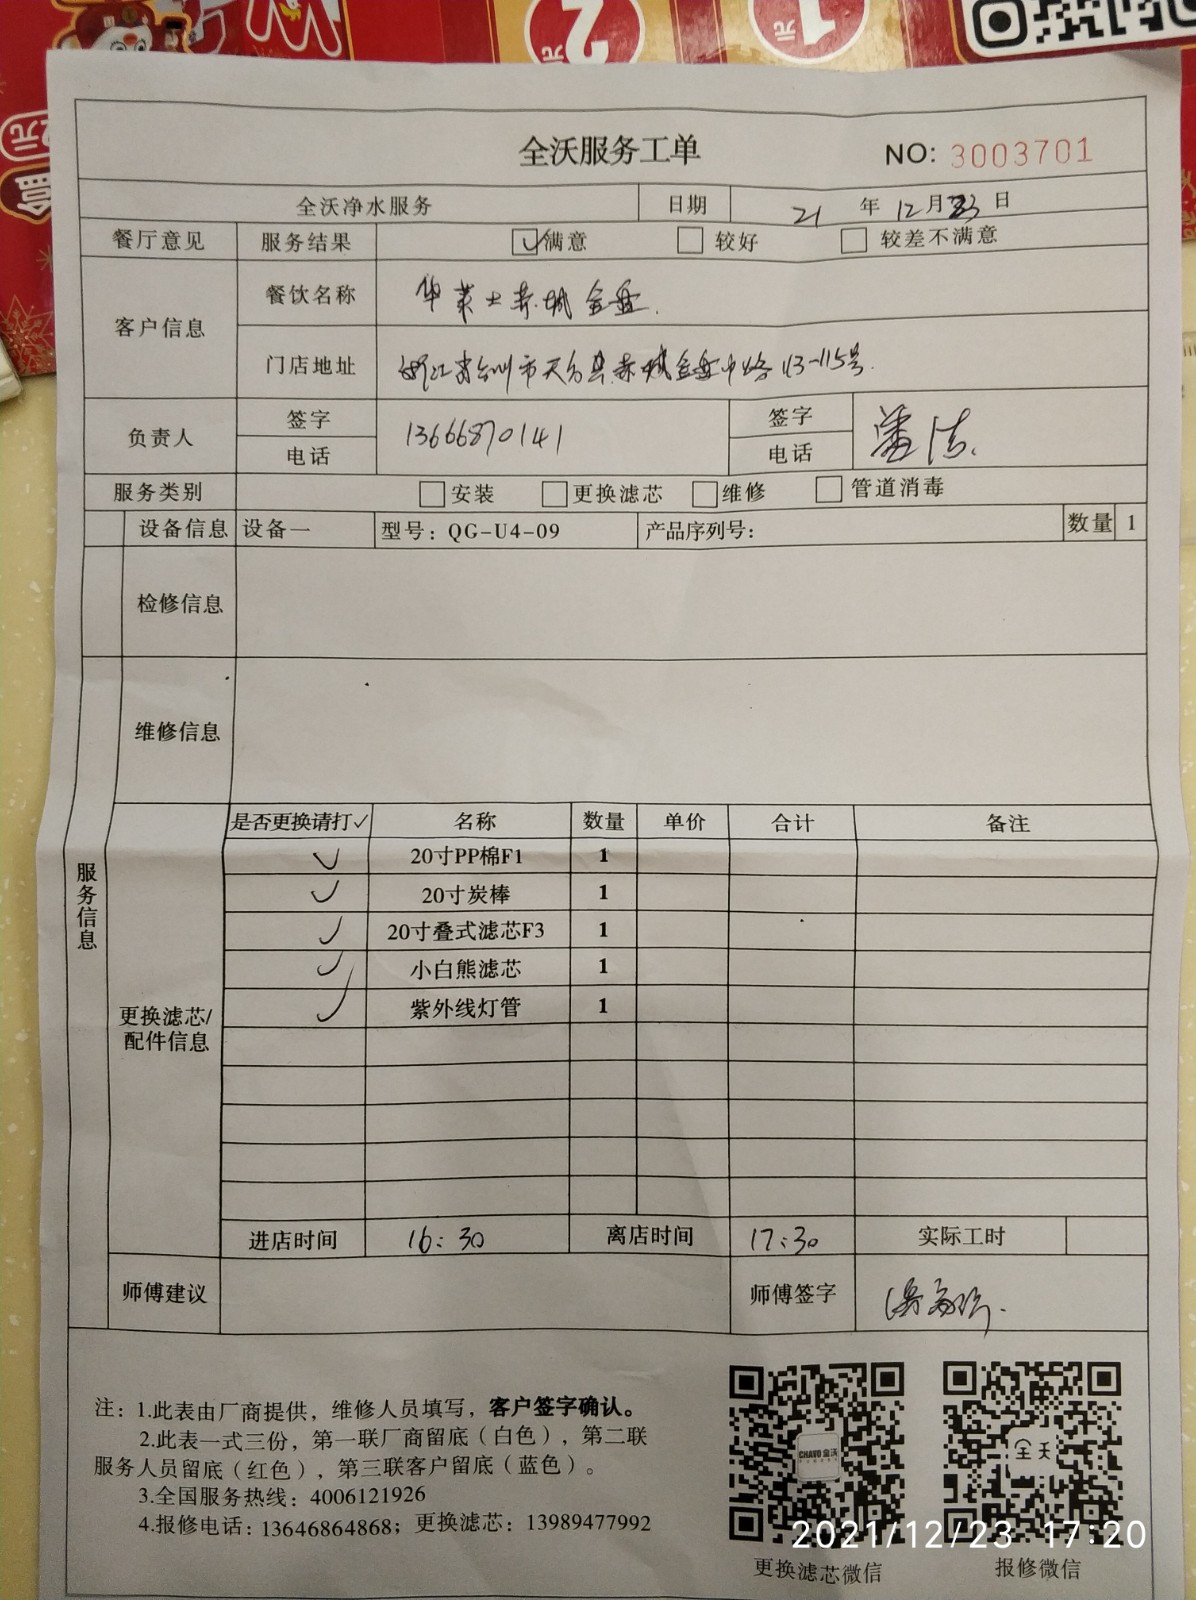 2元
1元
2元
全沃服务工单
NO: 3003701
全沃净水服务 日期 21 年 12 月 23 日
餐厅意见 服务结果 ☑满意 □ 较好 □ 较差不满意
客户信息 餐饮名称 华莱士赤城金盘.
门店地址 浙江省台州市天台县赤城金盘中路113-115号
负责人 签字 电话 13666870141 签字 电话 潘洁
服务类别 □安装 □更换滤芯 □维修 □管道消毒
设备信息 设备一 型号：QG-U4-09 产品序列号： 数量 1
检修信息
维修信息
服务信息
更换滤芯/
配件信息
是否更换请打✓ 名称 数量 单价 合计 备注
✓ 20寸PP棉F1 1
✓ 20寸炭棒 1
✓ 20寸叠式滤芯F3 1
✓ 小白熊滤芯 1
✓ 紫外线灯管 1
进店时间 16:30 离店时间 17:30 实际工时
师傅建议 师傅签字
注：1.此表由厂商提供，维修人员填写，客户签字确认。
2.此表一式三份，第一联厂商留底（白色），第二联
服务人员留底（红色），第三联客户留底（蓝色）。
3.全国服务热线：4006121926
4.报修电话：13646864868；更换滤芯：13989477992
CHAVO 全沃
全沃
2021/12/23 17:20
更换滤芯微信 报修微信